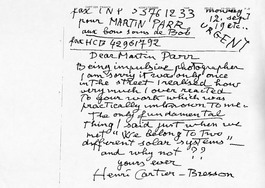 fax T N P > 3761 2 33
pour MARTIN PARR
aux bons soins de Bob
12. sept
URGENT
fax HCB 42961792
Dear Martin Parr
Being impulsive photographer
I am sorry it was only once
in the street I realised how
very much I over reacted
to your work which was
practically unknown to me.
The only fundamental
thing I said just when we
met "We belong to two
different solar systems"-
and why not ??
yours ever
Henri Cartier-Bresson